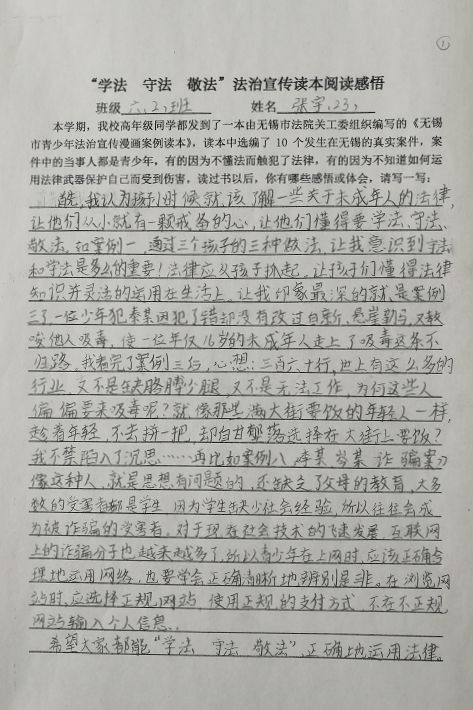 ①
“学法　守法　敬法”法治宣传读本阅读感悟
班级 六.(2)班　姓名 张宇(23)
本学期，我校高年级同学都发到了一本由无锡市法院关工委组织编写的《无锡
市青少年法治宣传漫画案例读本》，读本中选编了 10 个发生在无锡的真实案件，案
件中的当事人都是青少年，有的因为不懂法而触犯了法律，有的因为不知道如何运
用法律武器保护自己而受到伤害，读过书以后，你有哪些感悟或体会，请写一写：
首先，我认为孩子时候就该了解一些关于未成年人的法律，
让他们从小就有一颗戒备的心，让他们懂得要学法、守法、
敬法。如案例一，通过三个孩子的三种做法，让我意识到守法
和学法是多么的重要！法律应从孩子抓起，让孩子们懂得法律
知识并灵活的运用在生活上。让我印象最深的就是案例
三了，一位少年犯秦某因犯了错却没有改过自新、悬崖勒马，又教
唆他人吸毒，使一位年仅16岁的未成年人走上了吸毒这条不
归路。我看完了案例三后，心想：三百六十行，世上有这么多的
行业，又不是缺胳膊少腿，又不是无法工作，为何这些人
偏偏要来吸毒呢？就像那些满大街要饭的年轻人一样，
趁着年轻，不去拼一把，却自甘堕落选择在大街上要饭？
我不禁陷入了沉思……再比如案例八 李某 岑某 诈骗案，
像这种人，就是思想有问题的，还缺乏了父母的教育，大多
数的受害者都是学生，因为学生缺少社会经验，所以往往会成
为被诈骗的受害者。对于现在社会技术的飞速发展，互联网
上的诈骗分子也越来越多了，所以青少年在上网时，应该正确合
理地运用网络，也要学会正确清晰地辨别是非。在浏览网
站时，应选择正规网站，使用正规的支付方式，不在不正规
网站输入个人信息。
希望大家都能“学法　守法　敬法”，正确地运用法律。